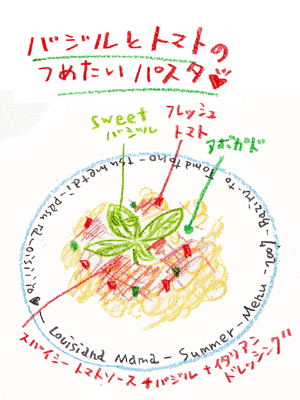 バジルとトマトの
つめたいパスタ
sweet
バジル
フレッシュ
トマト
アボガド
Louisiana Mama - Summer - Menu - 2004 - Baziru-to-Tomatono-tsumetai-pasuta-oisiiyo
スパイシートマトソース+バジル+イタリアン
ドレッシング